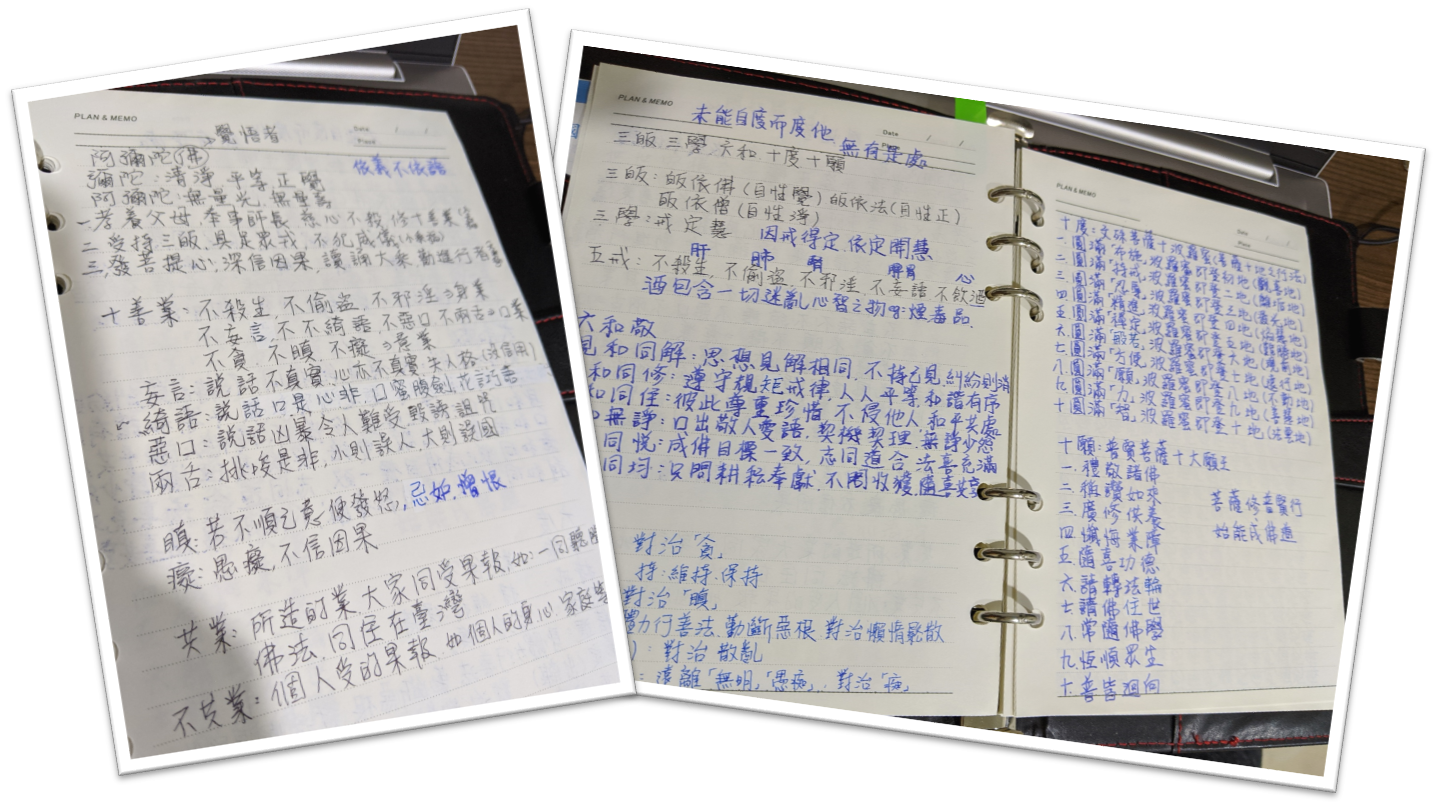 PLAN & MEMO
Date / /
Place
覺悟者
阿彌陀佛
依義不依語
彌陀：清淨.平等.正覺
阿彌陀：無量光.無量壽
一.孝養父母.奉事師長.慈心不殺.修十善業
二.受持三皈.具足眾戒,不犯威儀
三.發菩提心,深信因果,讀誦大乘,勸進行者
十善業：不殺生,不偷盜,不邪淫⇒身業
不妄言.不綺語.不惡口.不兩舌⇒口業
不貪.不瞋.不癡⇒意業
妄言：說話不真實,心亦不真實失人格(沒信用)
綺語：說話口是心非.口蜜腹劍.花言巧語
惡口：說話凶暴令人難受毀謗詛咒
兩舌：挑唆是非,小則誤人,大則誤國
瞋：若不順己意便發怒,忌妒.憎恨
癡：愚癡,不信因果
共業：所造的業大家同受果報.如:一同聽聞
佛法.同住在臺灣
不共業：個人受的果報.如個人的身心.家庭
PLAN & MEMO
Date / /
未能自度而度他.無有是處
三皈.三學.六和.十度十願
三皈：皈依佛(自性覺)皈依法(自性正)
皈依僧(自性淨)
三學：戒定慧 因戒得定.依定開慧
肝 肺 腎 脾胃 心
五戒：不殺生,不偷盜,不邪淫,不妄語不飲酒
酒包含一切迷亂心智之物 煙毒品.
六和敬
見和同解：思想見解相同,不持己見糾紛則消
和同修：遵守規矩戒律,人人平等和諧有序
和同住：彼此尊重珍惜,不侵他人和平共處
無諍：口出敬人愛語,契機契理,無諍少怨
同悅：成佛目標一致,志同道合,法喜充滿
同均：只問耕耘奉獻.不問收穫隨喜共享
對治「貪」
持：維持.保持
對治「瞋」
力行善法.勤斷惡根.對治懶惰鬆散
)：對治散亂
：遠離「無明」「愚痴」.對治「痴」
PLAN & MEMO
Date / /
Place
十度：文殊菩薩十波羅蜜(菩薩十地之行法)
一.圓滿「布施」波羅蜜即登初地(歡喜地)
二.圓滿「持戒」波羅蜜即登二地(離垢地)
三.圓滿「忍辱」波羅蜜即登三地(發光地)
四.圓滿「精進」波羅蜜即登四地(焰慧地)
五.圓滿「禪定」波羅蜜即登五地(難勝地)
六.圓滿「般若」波羅蜜即登六地(現前地)
七.圓滿「方便」波羅蜜即登七地(遠行地)
八.圓滿「願」波羅蜜即登八地(不動地)
九.圓滿「力」波羅蜜即登九地(善慧地)
十.圓滿「智」波羅蜜即登十地(法雲地)
十願：普賢菩薩十大願王
一.禮敬諸佛
二.稱讚如來 菩薩修普賢行
三.廣修供養 始能成佛道
四.懺悔業障
五.隨喜功德
六.請轉法輪
七.請佛住世
八.常隨佛學
九.恆順眾生
十.普皆迴向